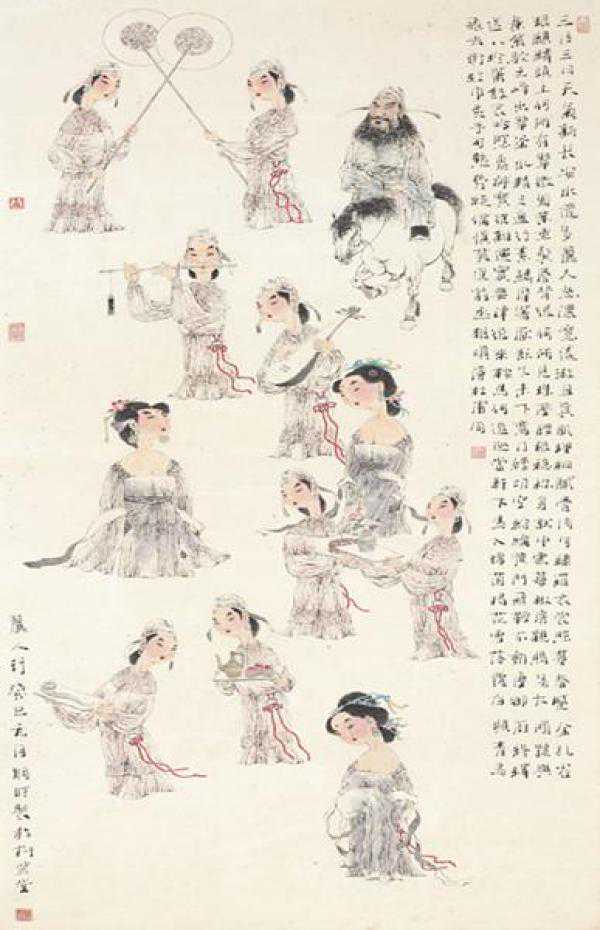 三月三日天氣新長安水邊多麗人態濃意遠淑且真肌理細膩骨肉勻繡羅衣裳照暮春蹙金孔雀
銀麒麟頭上何所有翠微㔩葉垂鬢唇背後何所見珠壓腰衱穩稱身就中雲幕椒房親賜名大國虢與
秦紫駝之峰出翠釜水精之盤行素鱗犀箸厭飫久未下鸞刀縷切空紛綸黃門飛鞚不動塵御廚絡繹
送八珍簫鼓哀吟感鬼神賓從雜遝實要津後來鞍馬何逡巡當軒下馬入錦茵楊花雪落覆白蘋青鳥
飛去銜紅巾炙手可熱勢絕倫慎莫近前丞相嗔
麗人行癸巳元月